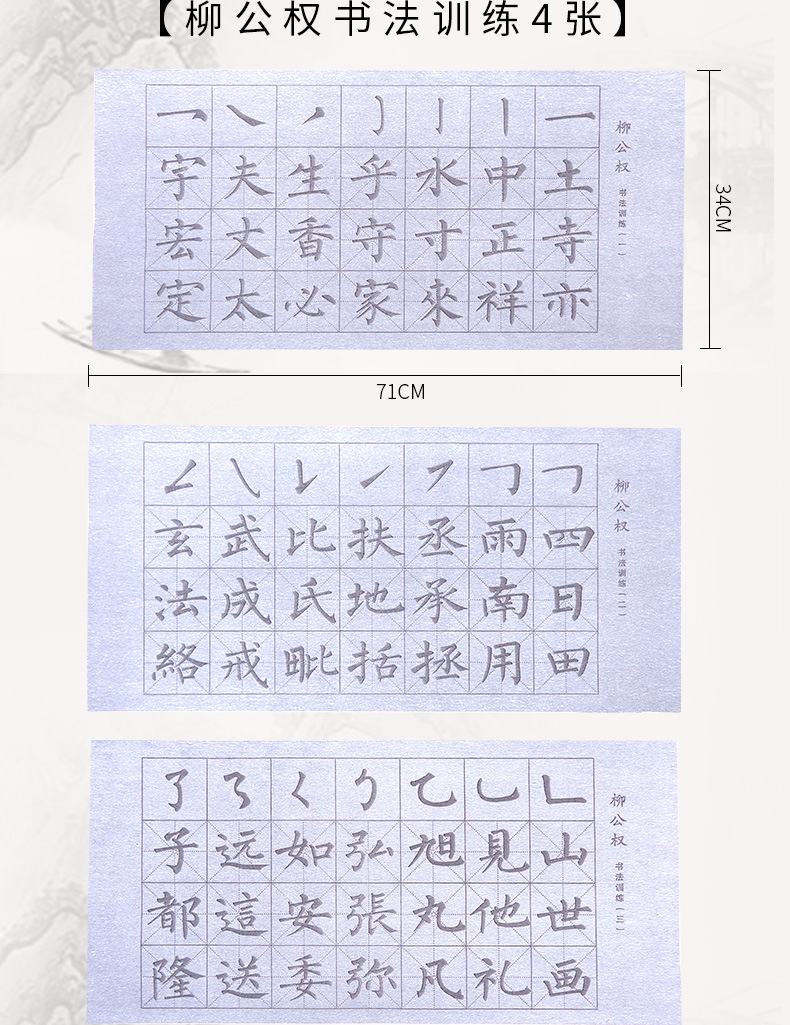 【柳公权书法训练4张】
柳公权 书法训练(一)
一丶㇒亅亅丨一
宇夫生乎水中土
宏丈香守寸正寺
定太必家來祥亦
34CM
71CM
柳公权 书法训练(二)
玄武比扶丞雨四
法成氏地承南日
絡戒毗括拯用田
柳公权 书法训练(三)
了㇋𡿨㇌乙乚𠃊
子远如弘旭見山
都這安張丸他世
隆送委弥凡礼画